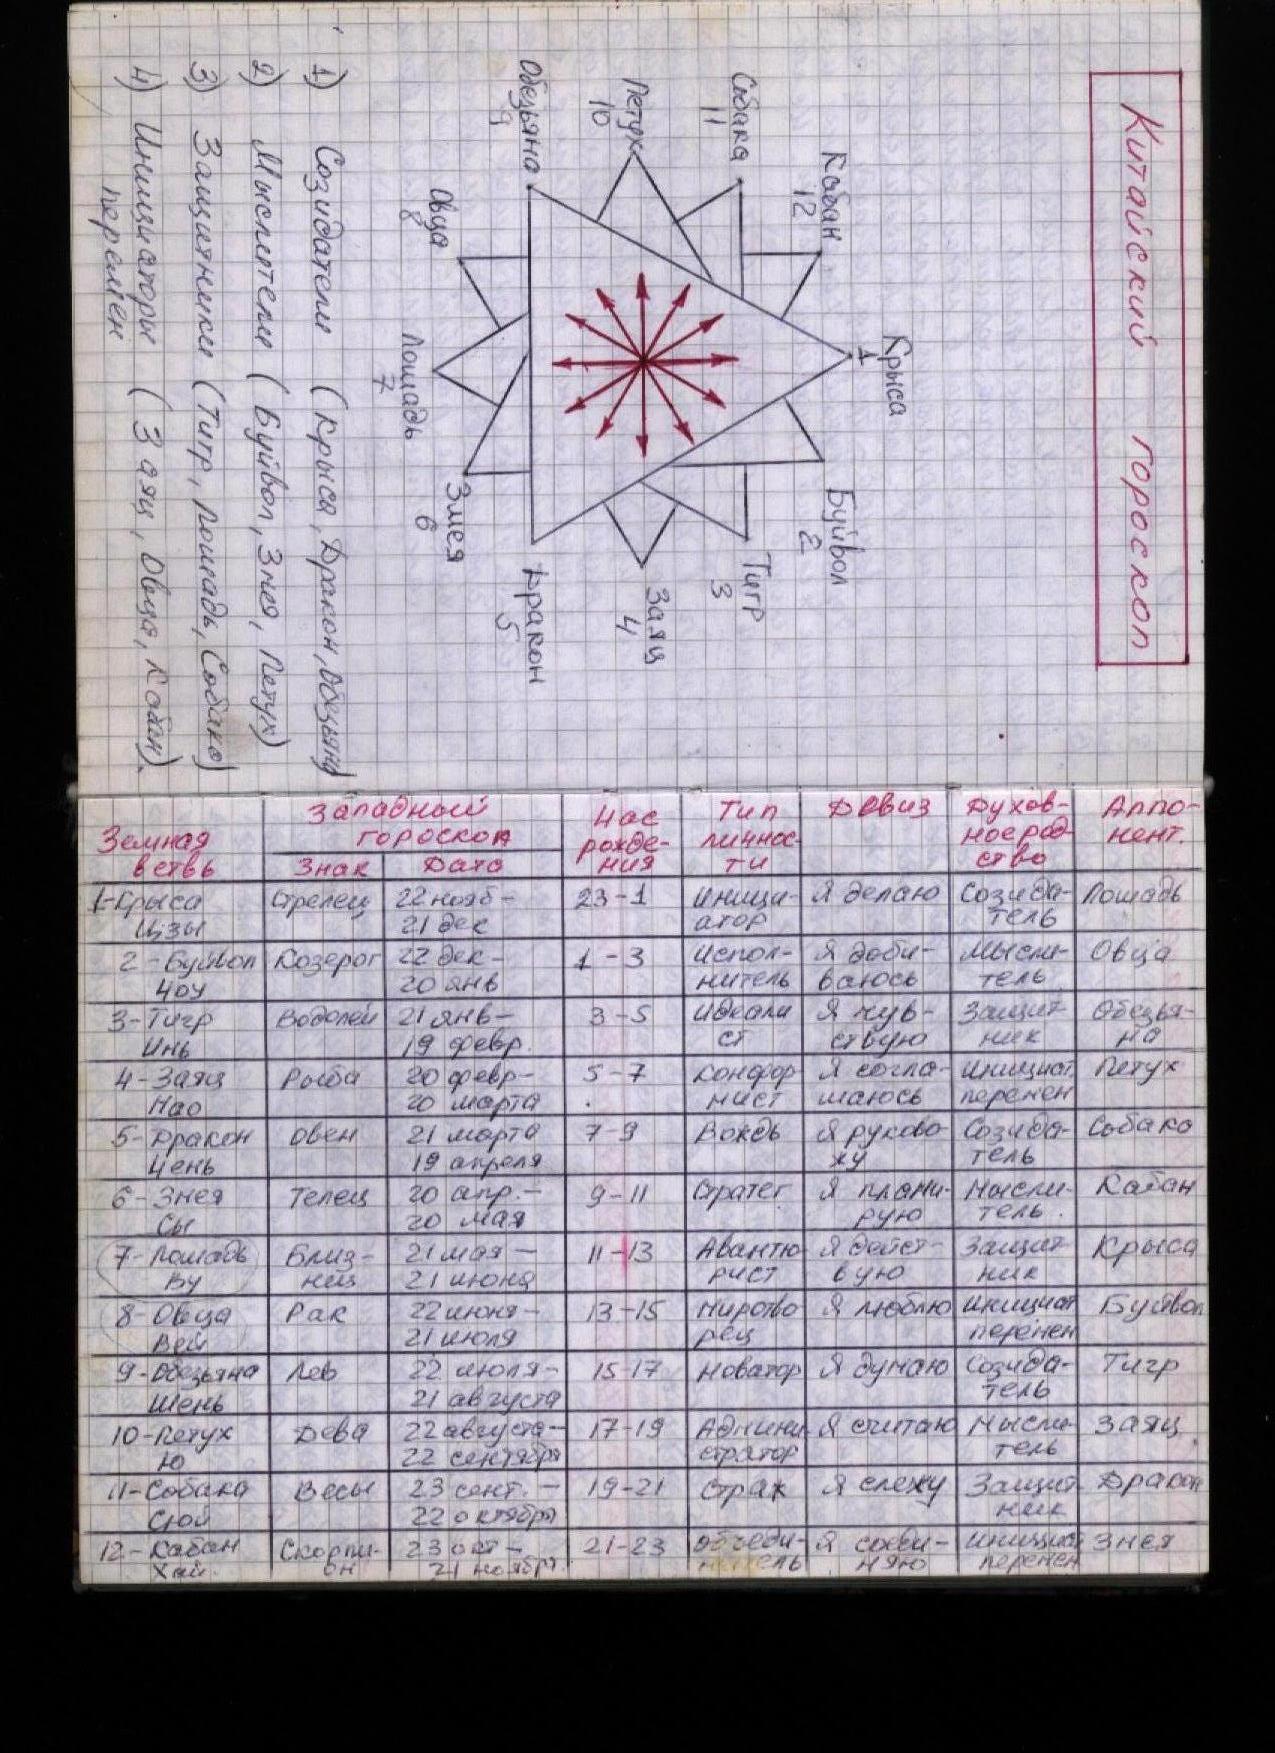 Китайский гороскоп
Крыса
1
Буйвол
2
Тигр
3
Заяц
4
Дракон
5
Змея
6
Лошадь
7
Овца
8
Обезьяна
9
Петух
10
Собака
11
Кабан
12
1) Созидатели (Крыса, Дракон, Обезьяна)
2) Мыслители (Буйвол, Змея, Петух)
3) Защитники (Тигр, Лошадь, Собака)
4) Инициаторы (Заяц, Овца, Кабан).
перемен
Земная ветвь | Западный гороскоп | Час рожде-ния | Тип личнос-ти | Девиз | Духов-ное род-ство | Аппо-нент.
Знак | Дата
1-Крыса Цзы | Стрелец | 22 нояб- 21 дек | 23-1 | Иници-атор | Я делаю | Созида-тель | Лошадь
2-Буйвол Чоу | Козерог | 22 дек- 20 янв | 1-3 | Испол-нитель | Я доби-ваюсь | Мысли-тель | Овца
3-Тигр Инь | Водолей | 21 янв- 19 февр. | 3-5 | Идеали ст | Я чув-ствую | Защит-ник | Обезья-на
4-Заяц Мао | Рыба | 20 февр- 20 марта | 5-7 | Конфор мист | Я согла-шаюсь | Инициат перемен | Петух
5-Дракон Чень | Овен | 21 марта 19 апреля | 7-9 | Вождь | Я руково-жу | Созида-тель | Собака
6-Змея Сы | Телец | 20 апр.- 20 мая | 9-11 | Стратег | Я плани-рую | Мысли-тель. | Кабан
7-Лошадь Ву | Близ-нец | 21 мая- 21 июня | 11-13 | Авантю рист | Я дейст-вую | Защит-ник | Крыса
8-Овца Вей | Рак | 22 июня- 21 июля | 13-15 | Миротво рец | Я люблю | Инициат перемен | Буйвол
9-Обезьяна Шень | Лев | 22 июля- 21 августа | 15-17 | Новатор | Я думаю | Созида-тель | Тигр
10-Петух Ю | Дева | 22 августа- 22 сентября | 17-19 | Админи стратор | Я считаю | Мысли-тель | Заяц
11-Собака Сюй | Весы | 23 сент.- 22 октября | 19-21 | Страж | Я слежу | Защит ник | Дракон
12-Кабан Хай. | Скорпи-он | 23 окт- 21 ноября. | 21-23 | Объеди-нитель | Я соеди-няю | Инициат перемен | Змея